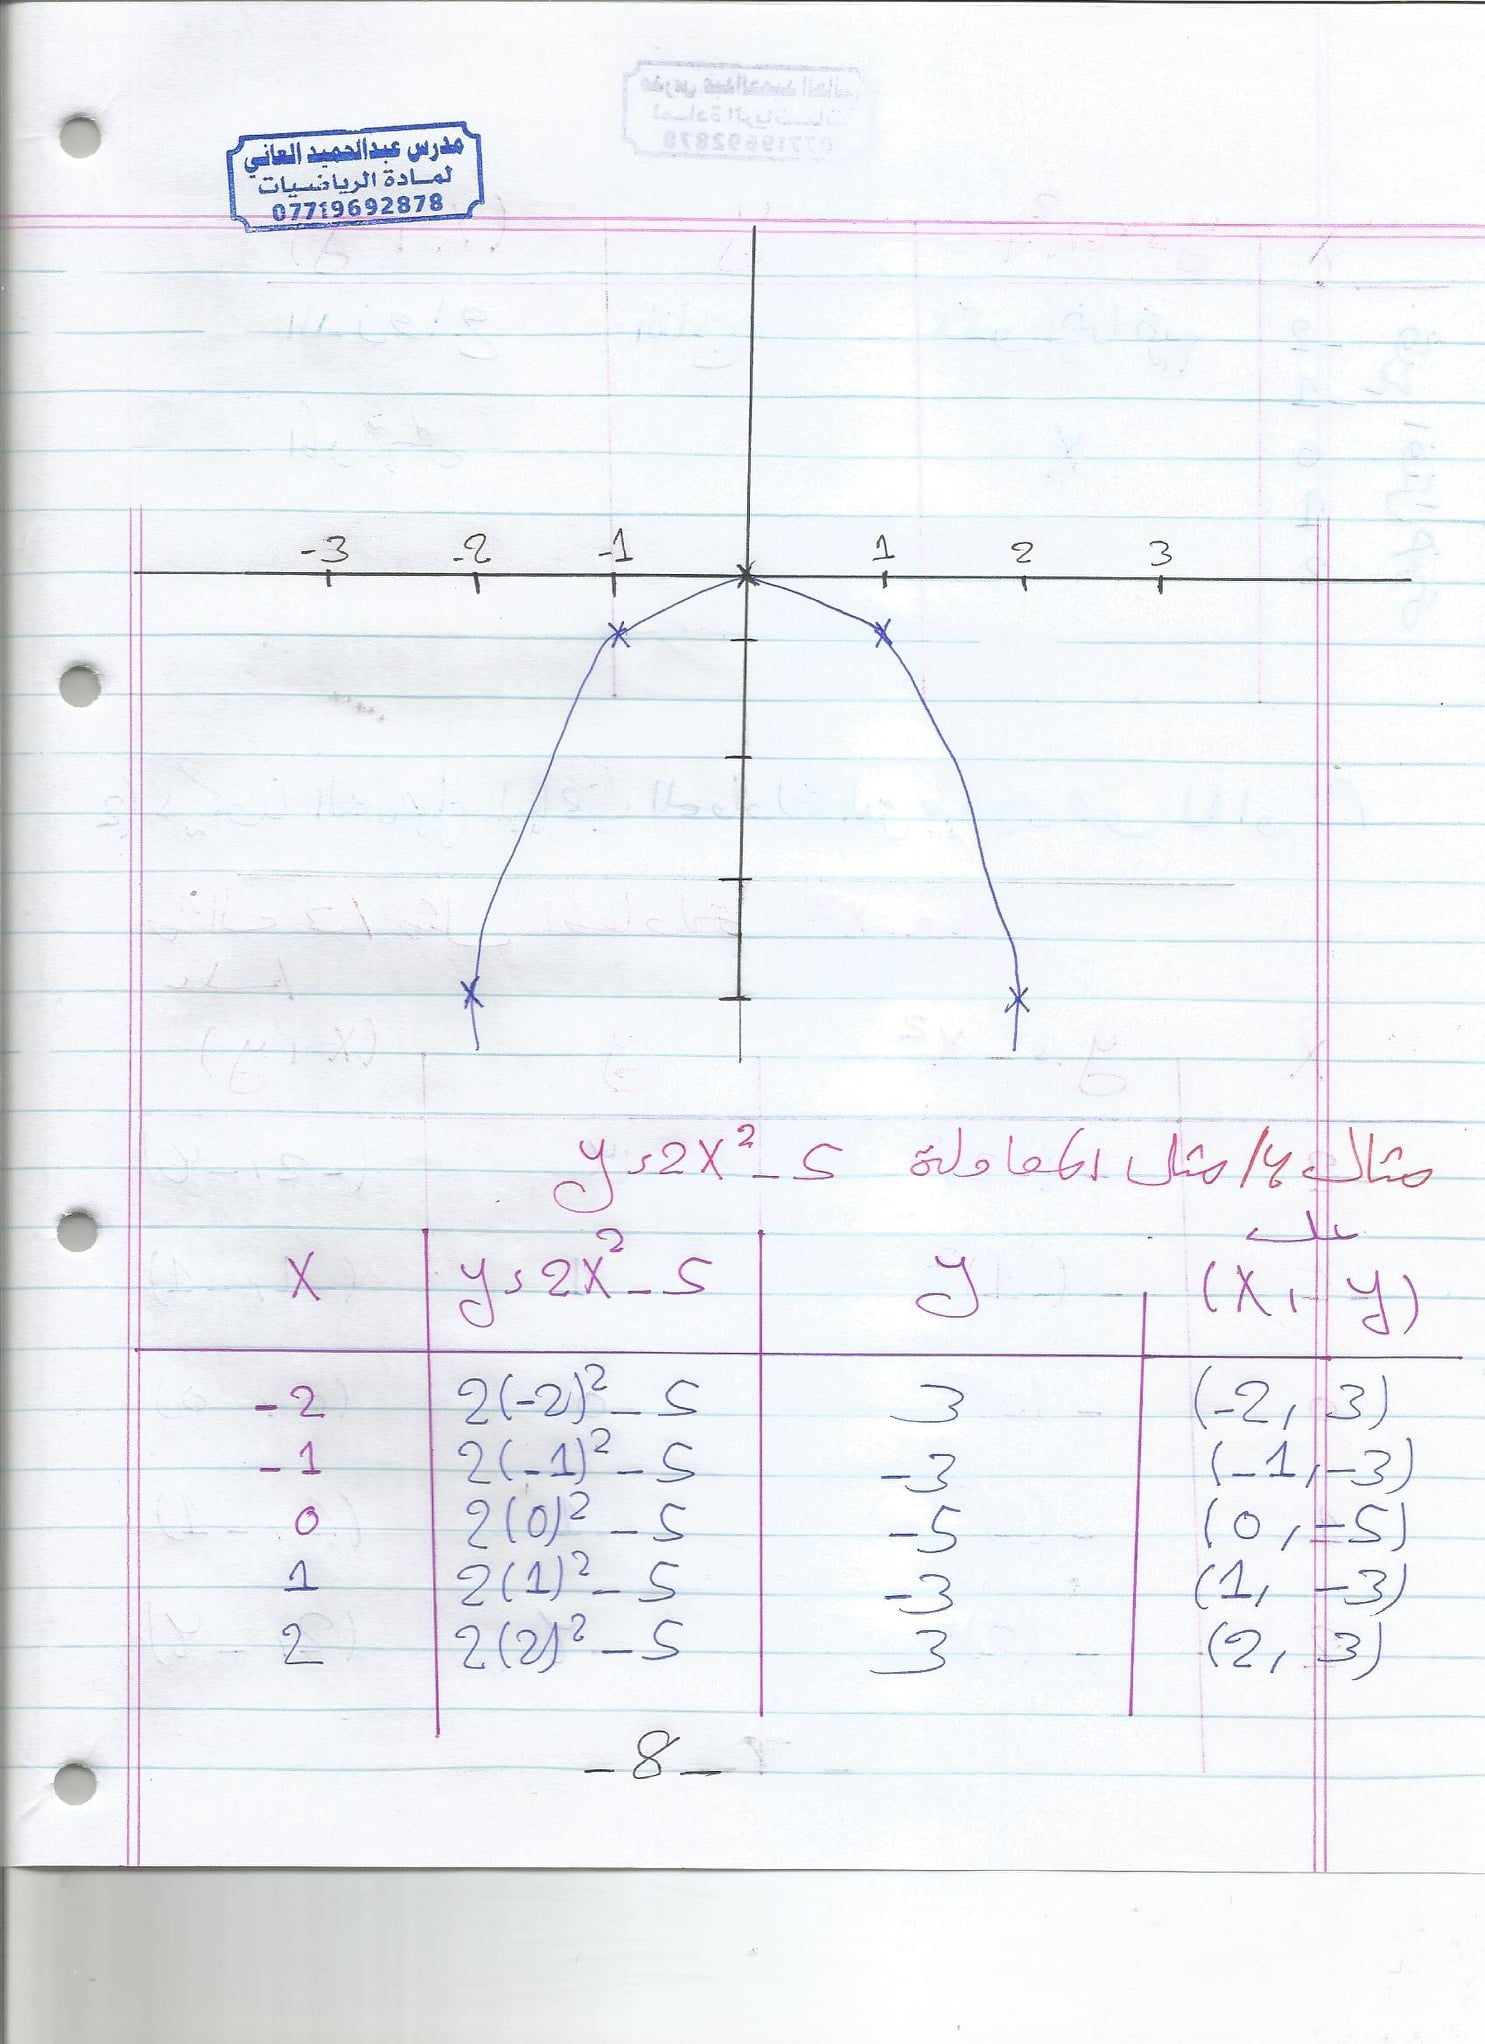 مدرس عبدالحميد العاني
لمادة الرياضيات
07719692878
-3 -2 -1 1 2 3
مثال 4/ مثل المعادلة y = 2x² - 5
x | y = 2x² - 5 | y | (x, y)
-2 | 2(-2)² - 5 | 3 | (-2, 3)
-1 | 2(-1)² - 5 | -3 | (-1, -3)
0 | 2(0)² - 5 | -5 | (0, -5)
1 | 2(1)² - 5 | -3 | (1, -3)
2 | 2(2)² - 5 | 3 | (2, 3)
- 8 -